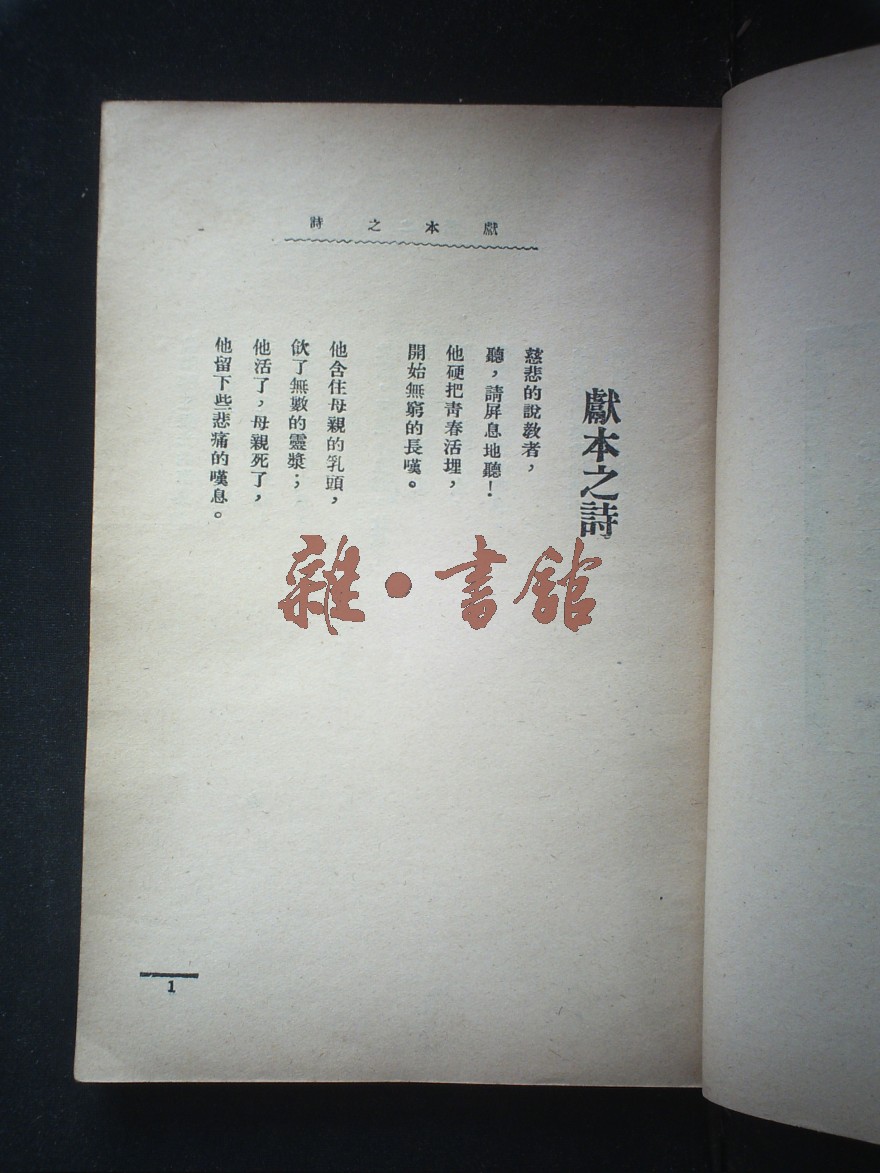 獻本之詩
獻本之詩
慈悲的說敎者，
聽，請屏息地聽！
他硬把靑春活埋，
開始無窮的長嘆。
他含住母親的乳頭，
飲了無數的靈漿；
他活了，母親死了，
他留下些悲痛的嘆息。
雜·書館
1